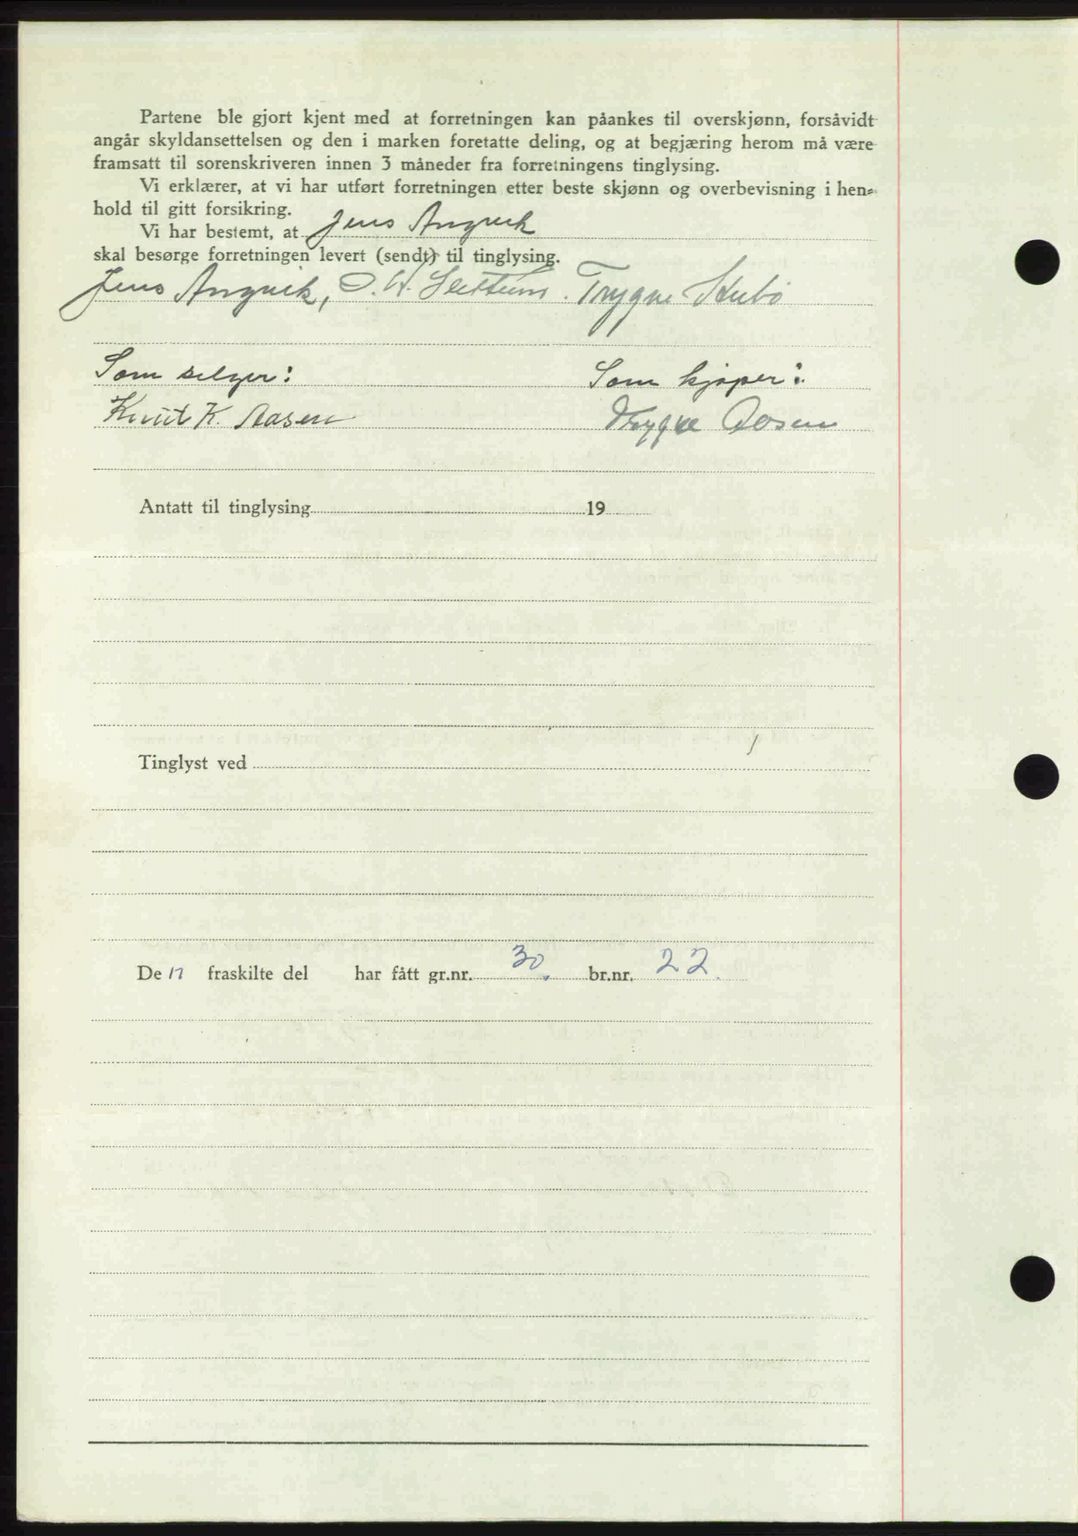 Partene ble gjort kjent med at forretningen kan påankes til overskjønn, forsåvidt
angår skyldansettelsen og den i marken foretatte deling, og at begjæring herom må være
framsatt til sorenskriveren innen 3 måneder fra forretningens tinglysing.
Vi erklærer, at vi har utført forretningen etter beste skjønn og overbevisning i hen-
hold til gitt forsikring.
Vi har bestemt, at Jens Angvik
skal besørge forretningen levert (sendt) til tinglysing.
Jens Angvik, O. W. Trygve Stubø
Som selger: Som kjøper:
Knut K. Aasen Trygve Aasen
Antatt til tinglysing 19
Tinglyst ved
De n fraskilte del har fått gr.nr. 30. br.nr. 22.